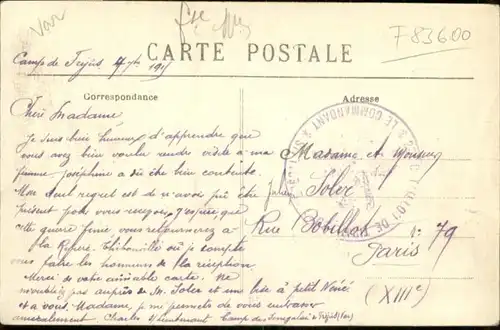 Var
F83600
CARTE POSTALE
Camp de Fréjus 4 7bre 1915
Correspondance
Adresse
Chère Madame,
Je suis bien heureux d'apprendre que
vous avez bien voulu rendre visite à ma
femme, Joséphine a dû être bien contente.
Mon seul regret est de n'avoir pû être
présent pour vous recevoir, j'espère que
cette guerre finie, vous retournerez à
la Rivière Thibouville où je compte
vous faire les honneurs de la réception
Merci de votre aimable carte. Ne
m'oubliez pas auprès de M. Soler et un
à petit René
et à vous, Madame, je me permets de vous embrasser
amicalement Charles
Camp des Sénégalais à Fréjus (Var)
Madame et Monsieur
Soler
Rue Bobillot, n: 79
Paris
(XIIIe)
LE COMMANDANT